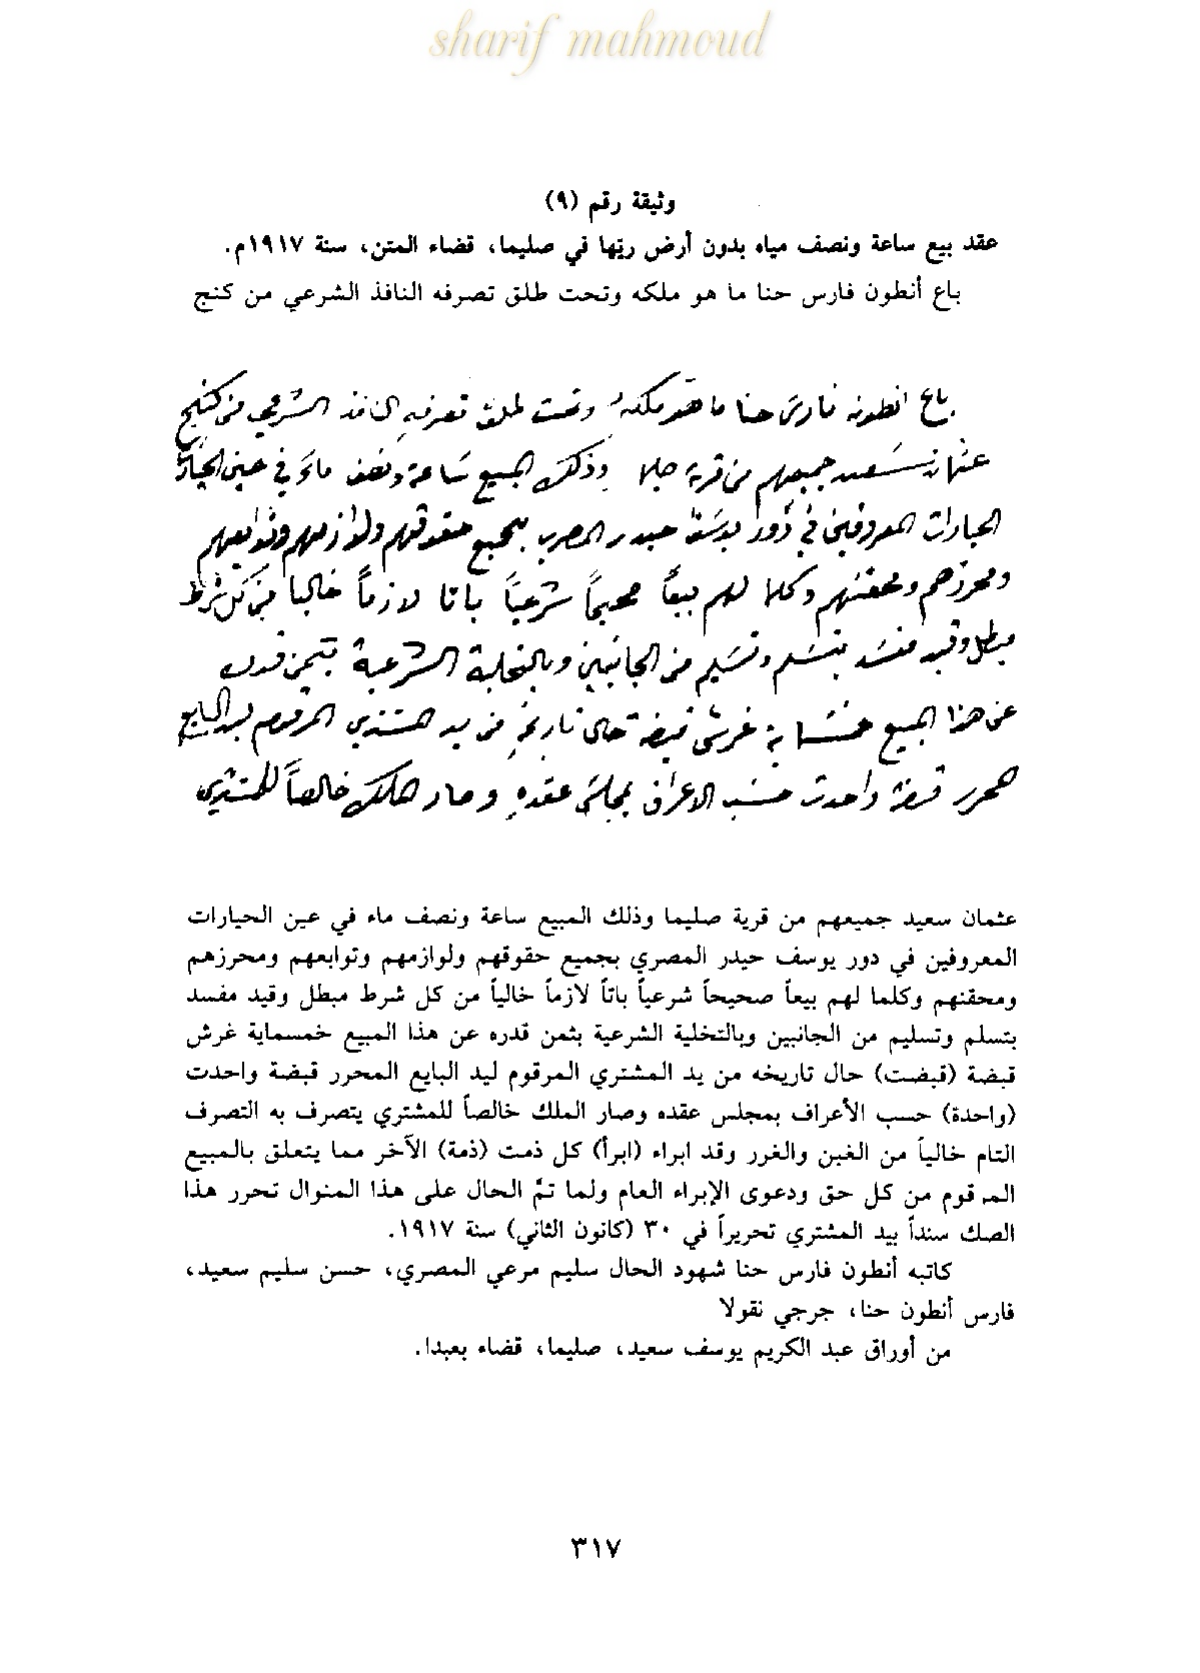 sharif mahmoud
وثيقة رقم (٩)
عقد بيع ساعة ونصف مياه بدون أرض ريّها في صليما، قضاء المتن، سنة ١٩١٧م.
باع أنطون فارس حنا ما هو ملكه وتحت طلق تصرفه النافذ الشرعي من كنج
باع انطون فارس حنا ما هو ملكه وتحت طلق تصرفه النافذ الشرعي من كنج
عثمان سعيد جميعهم من قرية صليما وذلك المبيع ساعة ونصف ماء في عين
الحيارات المعروفين في دور يوسف حيدر المصري بجميع حقوقهم ولوازمهم وتوابعهم
ومحرزهم ومحقنهم وكلما لهم بيعاً صحيحاً شرعياً باتا لازماً خاليا من كل شرط
مبطل وقيد مفسد بتسلم وتسليم من الجانبين وبالتخلية الشرعية بثمن قدره
عن هذا المبيع خمسماية غرش قبضة حال تاريخه من يد المشتري المرقوم ليد البايع
المحرر قبضة واحدت حسب الاعراف بمجلس عقده وصار الملك خالصاً للمشتري
عثمان سعيد جميعهم من قرية صليما وذلك المبيع ساعة ونصف ماء في عين الحيارات
المعروفين في دور يوسف حيدر المصري بجميع حقوقهم ولوازمهم وتوابعهم ومحرزهم
ومحقنهم وكلما لهم بيعاً صحيحاً شرعياً باتاً لازماً خالياً من كل شرط مبطل وقيد مفسد
بتسلم وتسليم من الجانبين وبالتخلية الشرعية بثمن قدره عن هذا المبيع خمسماية غرش
قبضة (قبضت) حال تاريخه من يد المشتري المرقوم ليد البايع المحرر قبضة واحدت
(واحدة) حسب الأعراف بمجلس عقده وصار الملك خالصاً للمشتري يتصرف به التصرف
التام خالياً من الغبن والغرر وقد ابراء (ابرأ) كل ذمت (ذمة) الآخر مما يتعلق بالمبيع
المرقوم من كل حق ودعوى الإبراء العام ولما تمّ الحال على هذا المنوال تحرر هذا
الصك سنداً بيد المشتري تحريراً في ٣٠ (كانون الثاني) سنة ١٩١٧.
كاتبه أنطون فارس حنا شهود الحال سليم مرعي المصري، حسن سليم سعيد،
فارس أنطون حنا، جرجي نقولا
من أوراق عبد الكريم يوسف سعيد، صليما، قضاء بعبدا.
٣١٧